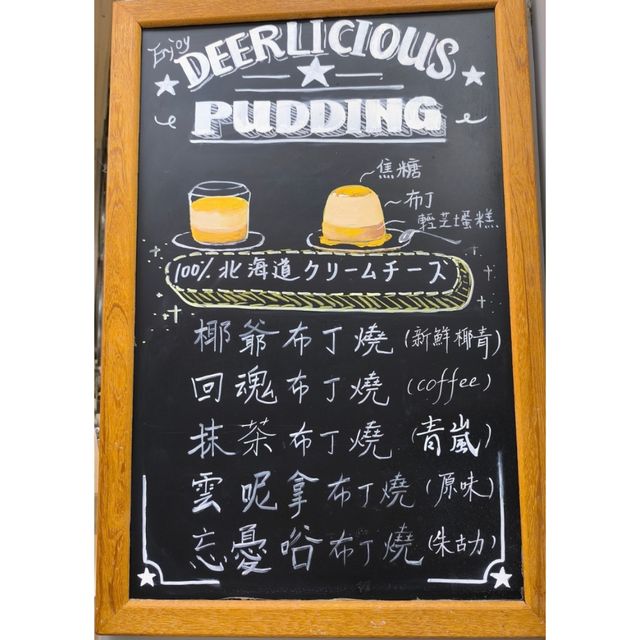 Enjoy
DEERLICIOUS
PUDDING
焦糖
布丁
輕芝士蛋糕
100% 北海道クリームチーズ
椰爺布丁燒 (新鮮椰青)
回魂布丁燒 (coffee)
抹茶布丁燒 (青嵐)
雲呢拿布丁燒 (原味)
忘憂哈布丁燒 (朱古力)